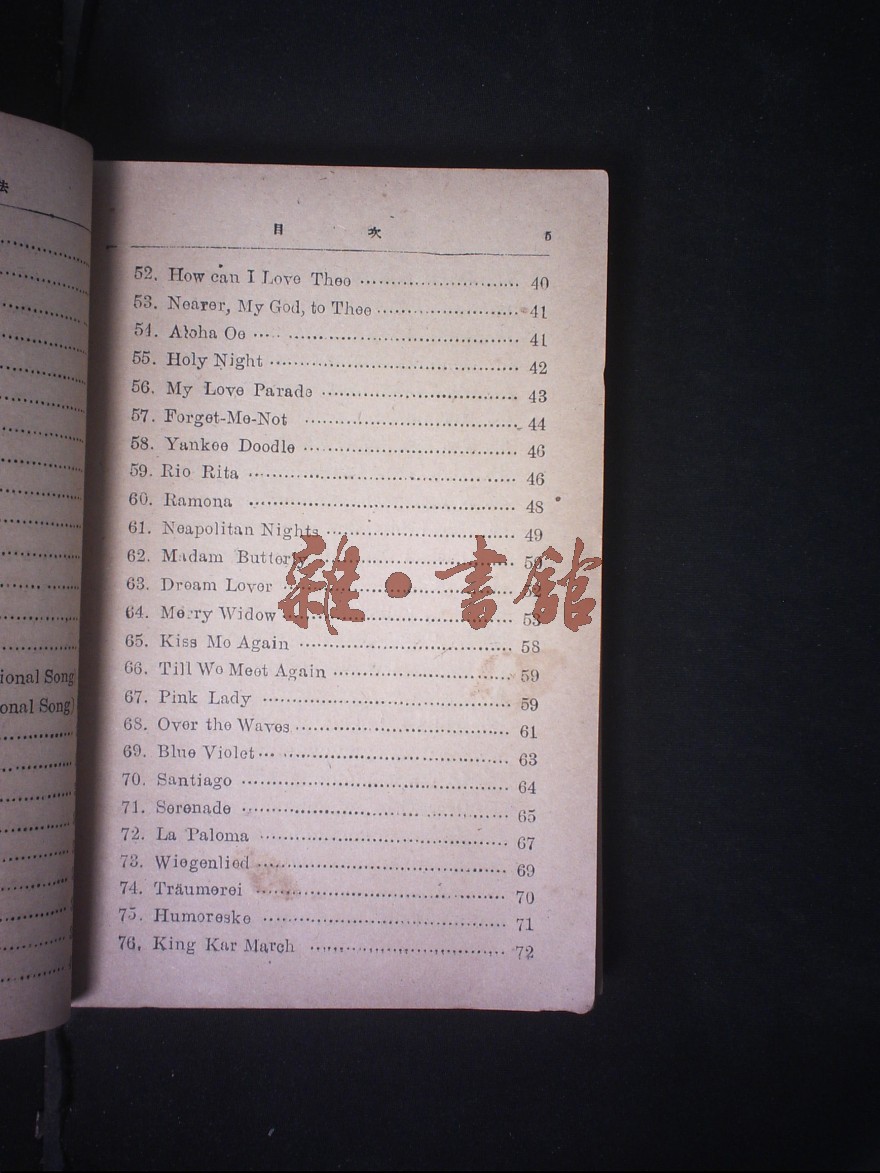 法
ional Song
onal Song)
目 次 5
52. How can I Love Thee ........ 40
53. Nearer, My God, to Thee ........ 41
54. Aloha Oe ........ 41
55. Holy Night ........ 42
56. My Love Parade ........ 43
57. Forget-Me-Not ........ 44
58. Yankee Doodle ........ 46
59. Rio Rita ........ 46
60. Ramona ........ 48
61. Neapolitan Nights ........ 49
62. Madam Butterfly ........ 50
63. Dream Lover ........ 52
64. Merry Widow ........ 53
65. Kiss Me Again ........ 58
66. Till We Meet Again ........ 59
67. Pink Lady ........ 59
68. Over the Waves ........ 61
69. Blue Violet ........ 63
70. Santiago ........ 64
71. Serenade ........ 65
72. La Paloma ........ 67
73. Wiegenlied ........ 69
74. Träumerei ........ 70
75. Humoreske ........ 71
76. King Kar March ........ 72
雜·書館